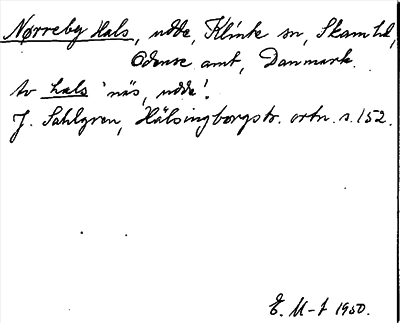 Nørreby Hals, udde, Klinte sn, Skam hd,
Odense amt, Danmark.
Av hals 'näs, udde'.
J. Sahlgren, Hälsingborgstr. ortn. s. 152.
E. M-t 1950.